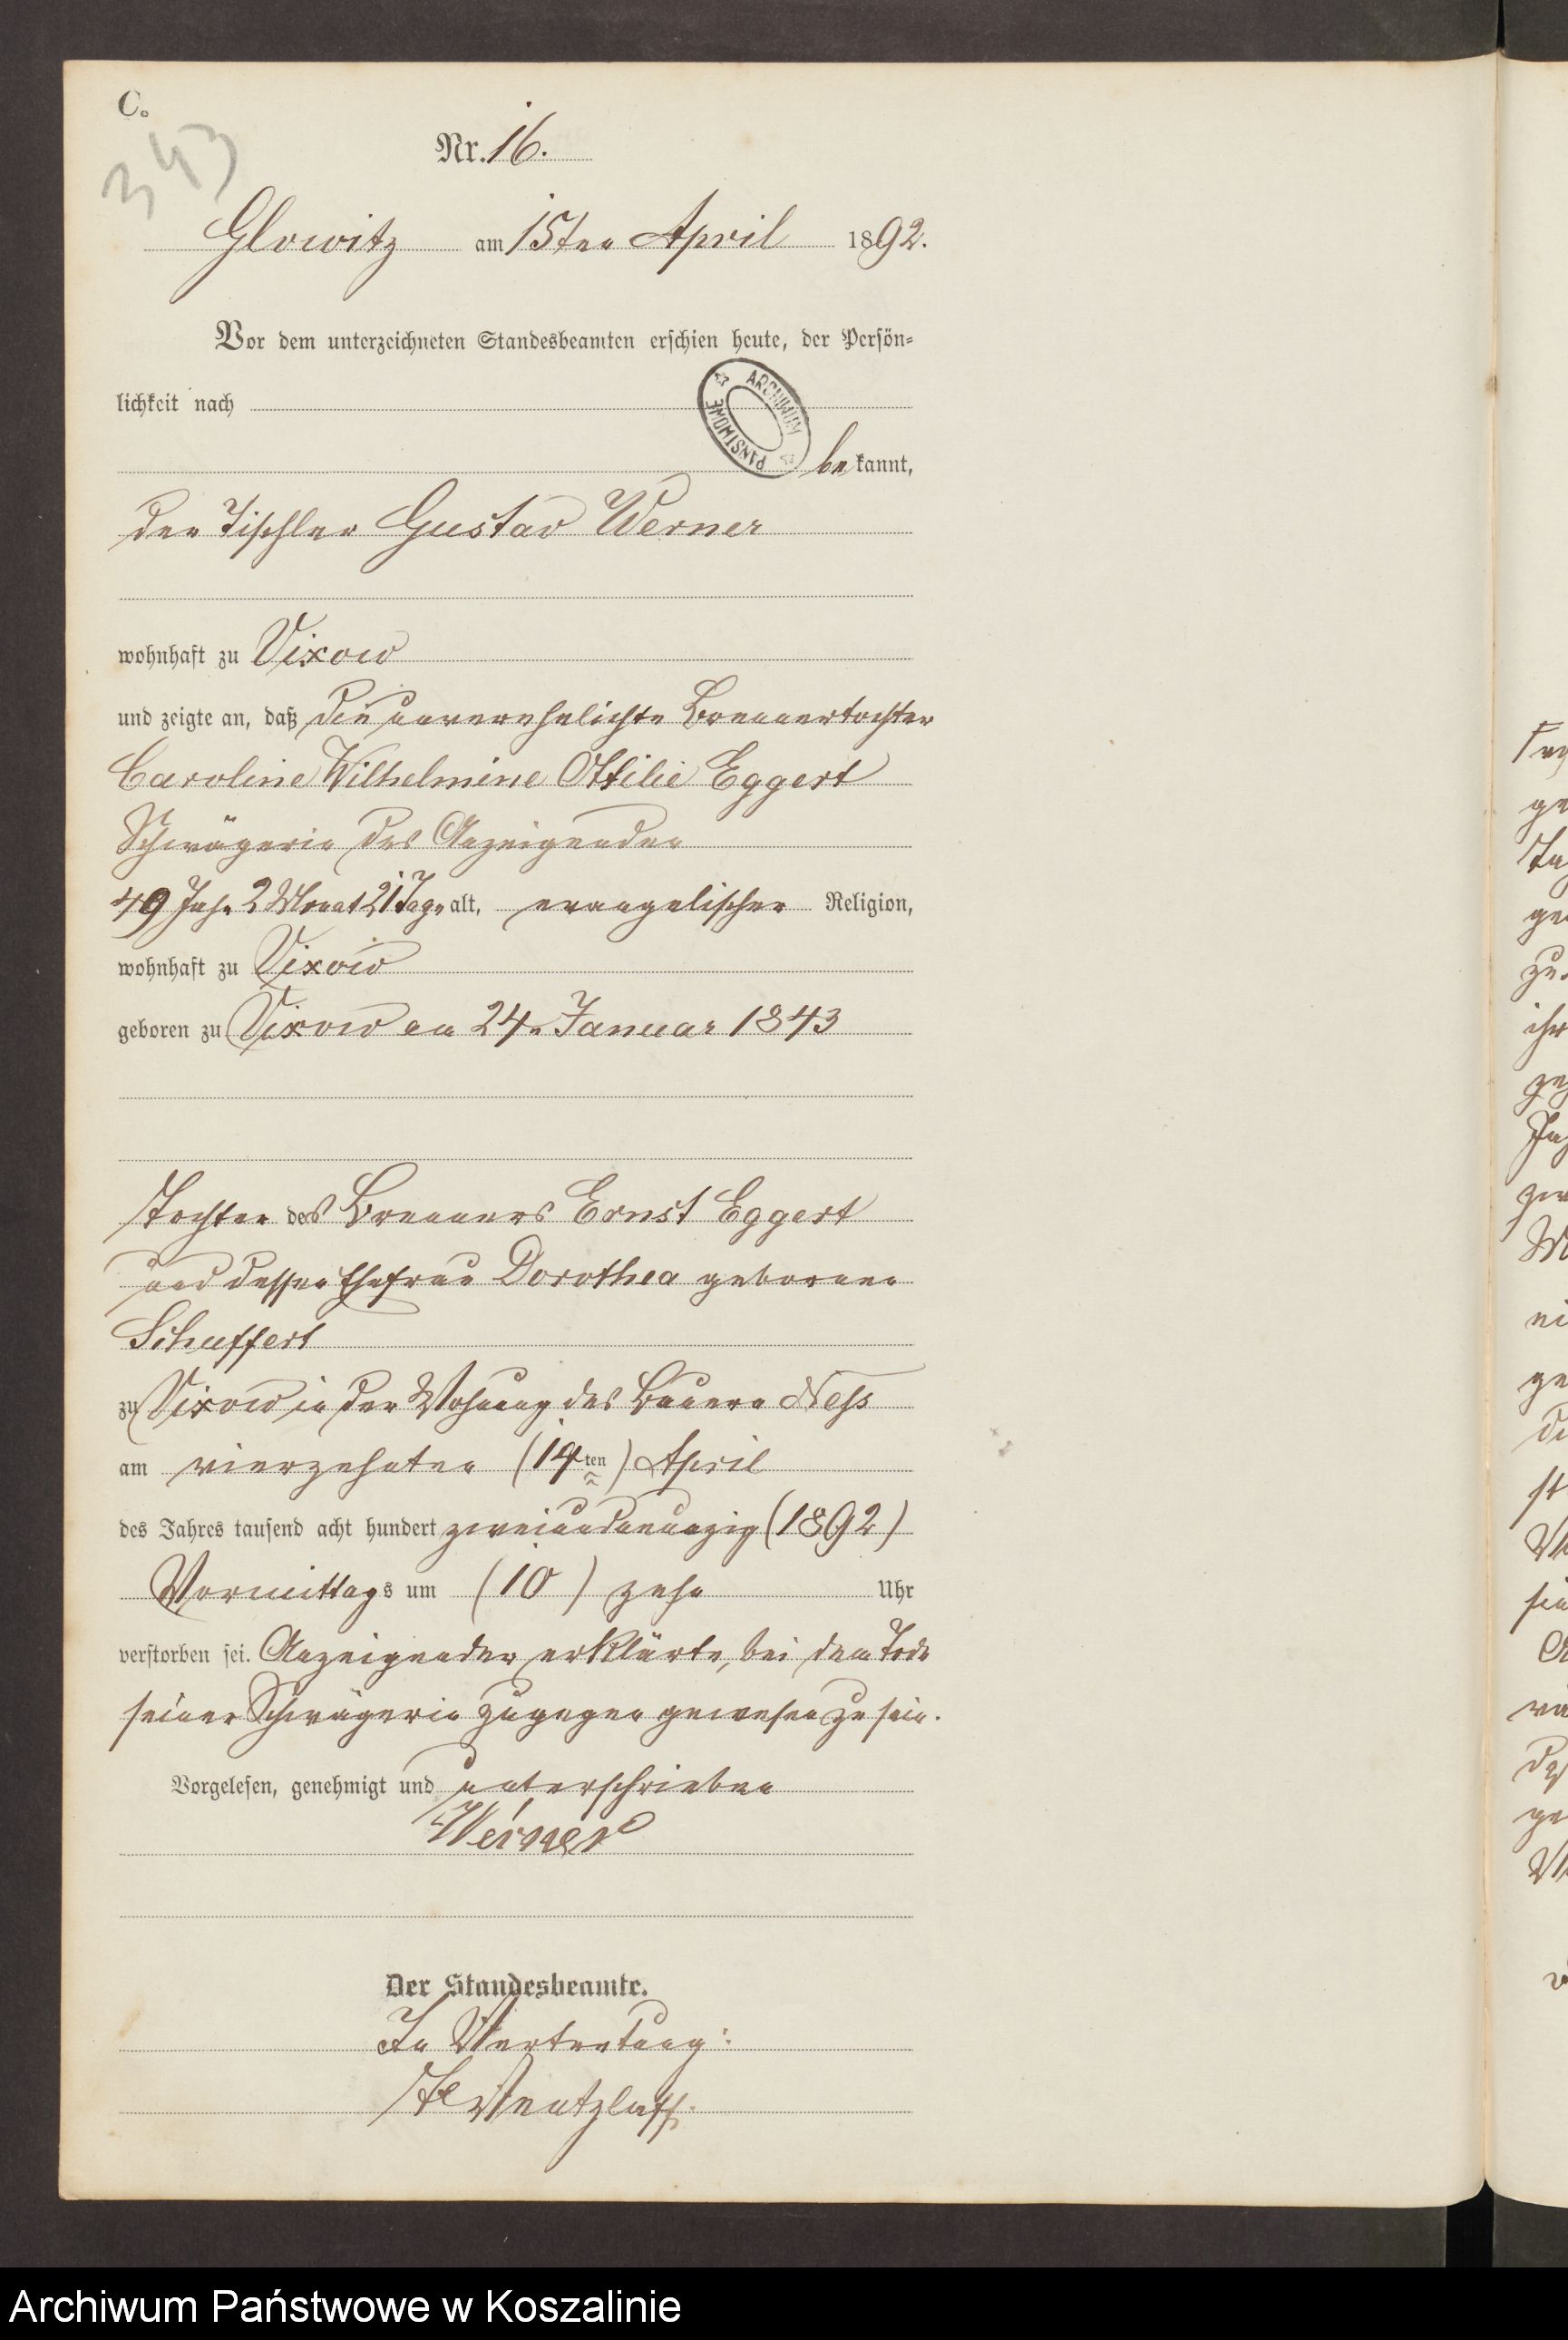 C.
343
Nr. 16.
Glowitz am 15ten April 1892.
Vor dem unterzeichneten Standesbeamten erschien heute, der Persön-
lichkeit nach
ARCHIWUM PAŃSTWOWE
bekannt,
der Tischler Gustav Werner
wohnhaft zu Vixow
und zeigte an, daß die unverehelichte Brennertochter
Caroline Wilhelmine Ottilie Eggert
Schwägerin des Anzeigenden
49 Jahr 2 Monat 21 Tage alt, evangelischer Religion,
wohnhaft zu Vixow
geboren zu Vixow am 24. Januar 1843
Tochter des Brenners Ernst Eggert
und dessen Ehefrau Dorothea geborenen
Schuffert
zu Vixow in der Wohnung des Bauern Neß
am vierzehnten (14ten) April
des Jahres tausend acht hundert zweiundneunzig (1892)
Vormittags um (10) zehn Uhr
verstorben sei. Anzeigender erklärte, bei dem Tode
seiner Schwägerin zugegen gewesen zu sein.
Vorgelesen, genehmigt und unterschrieben
Werner
Der Standesbeamte.
In Vertretung:
Wentzlaff.
Archiwum Państwowe w Koszalinie